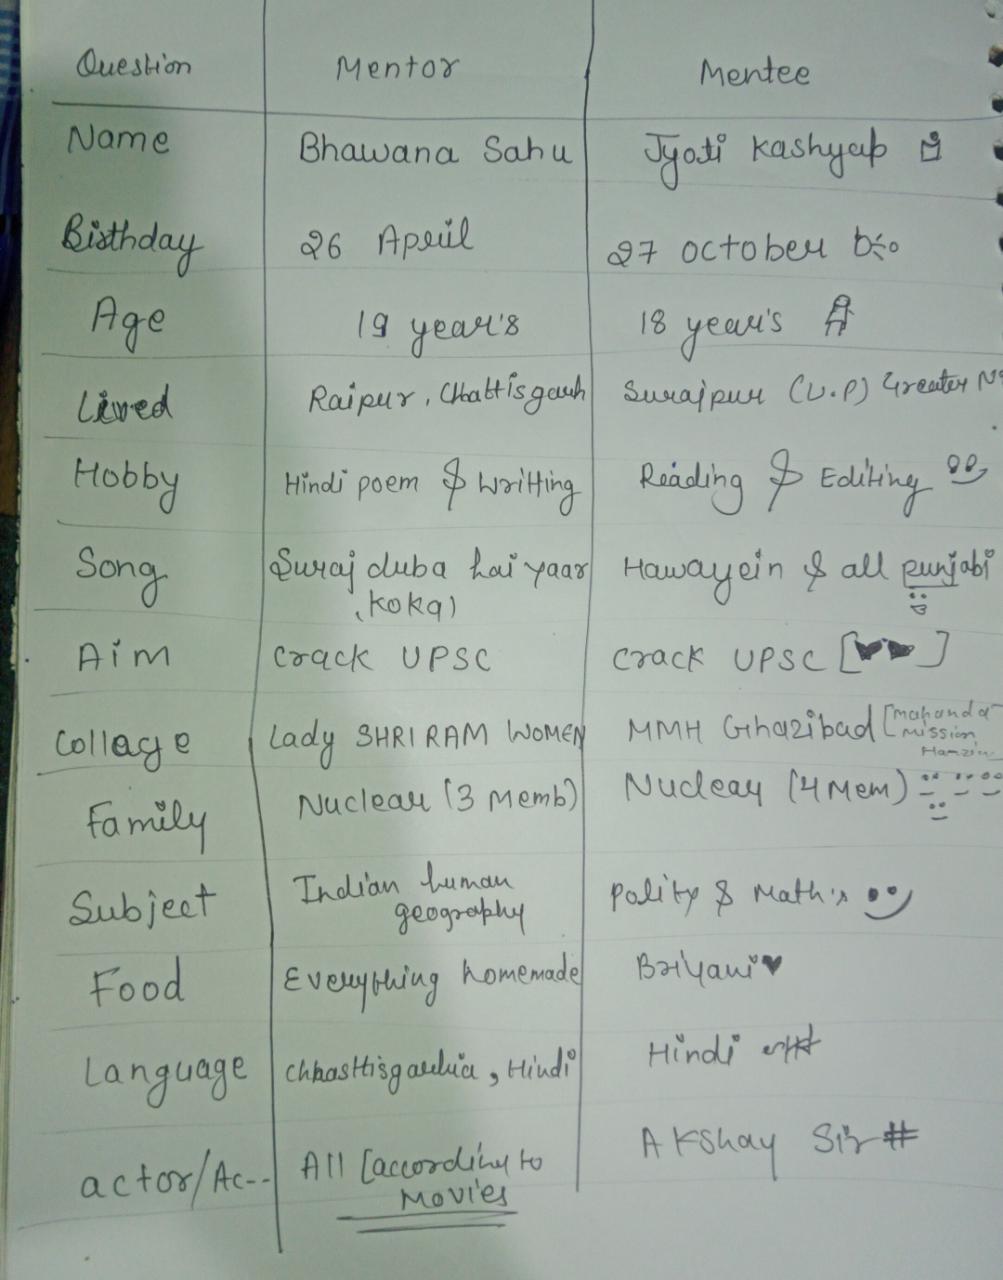 Question Mentor Mentee
Name Bhawana Sahu Jyoti Kashyap
Birthday 26 April 27 October
Age 19 year's 18 year's
Lived Raipur, Chattisgarh Surajpur (U.P) Greater
Hobby Hindi poem & Writting Reading & Editing
Song Suraj duba hai yaar Hawayein & all punjabi
Aim Crack UPSC Crack UPSC
Collage Lady SHRI RAM WOMEN MMH Ghazibad [Mahanda
Mission
Family Nuclear (3 Memb) Nuclear (4 Mem)
Subject Indian human Polity & Math's
geography
Food Everything homemade Briyani
Language Chhasttisgarhia, Hindi Hindi
actor/Ac-- All [according to Akshay Sir #
Movies